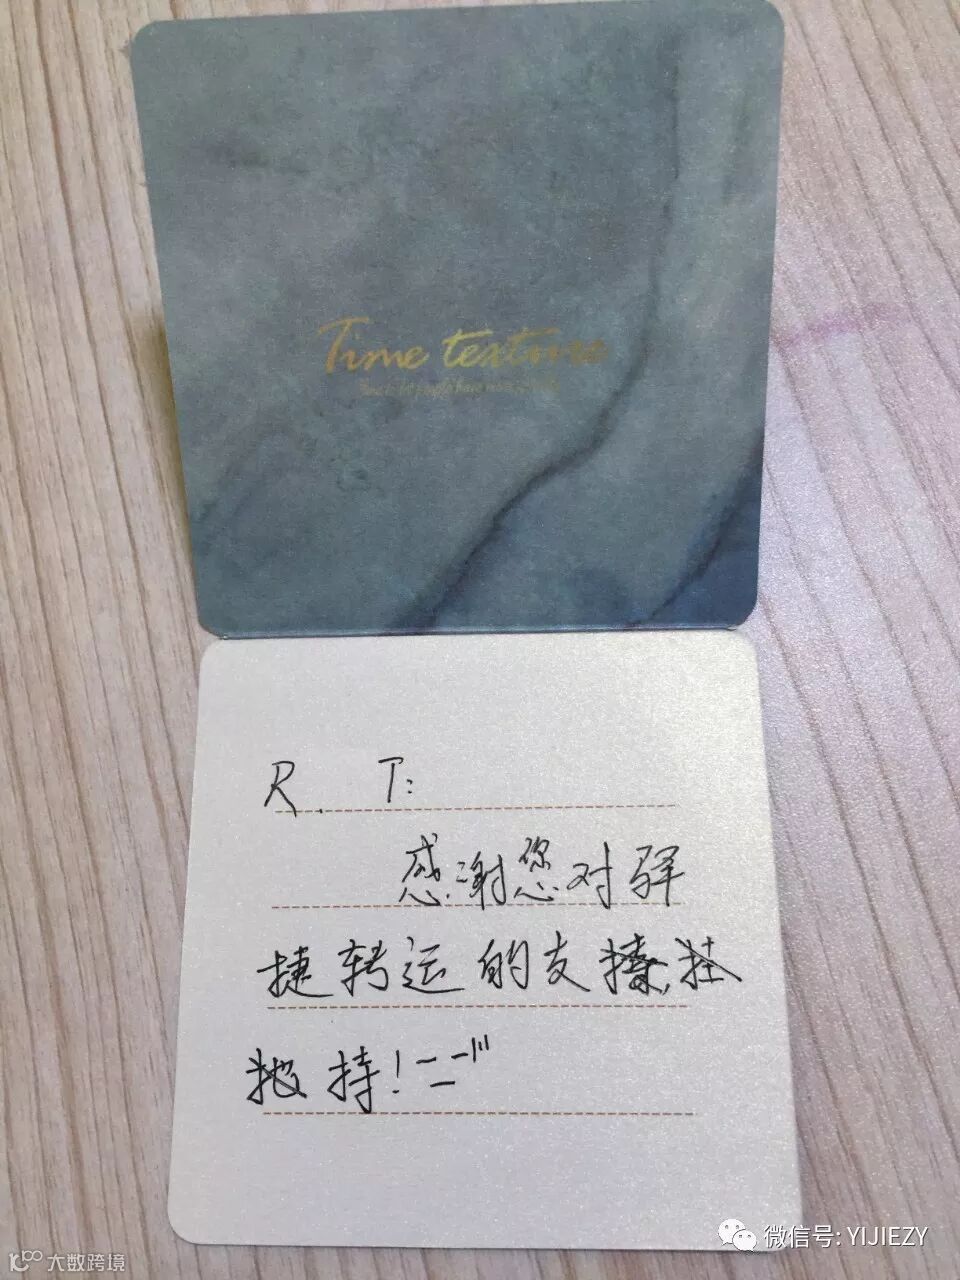 Time texture
R. T:
感谢您对驿
捷转运的支
持! 
微信号: YIJIEZY
大数跨境